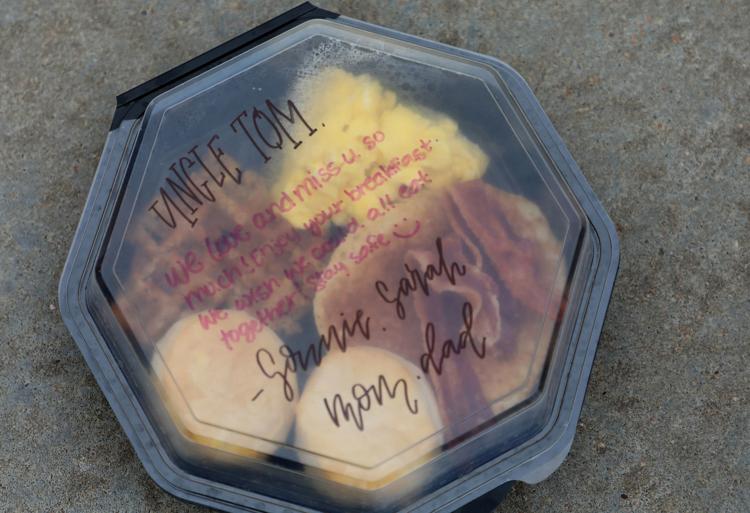 UNCLE TOM.
We love and miss u so
much! Enjoy your breakfast.
We wish we could all eat
together! Stay safe
- Sonnie. Sarah
mom. dad